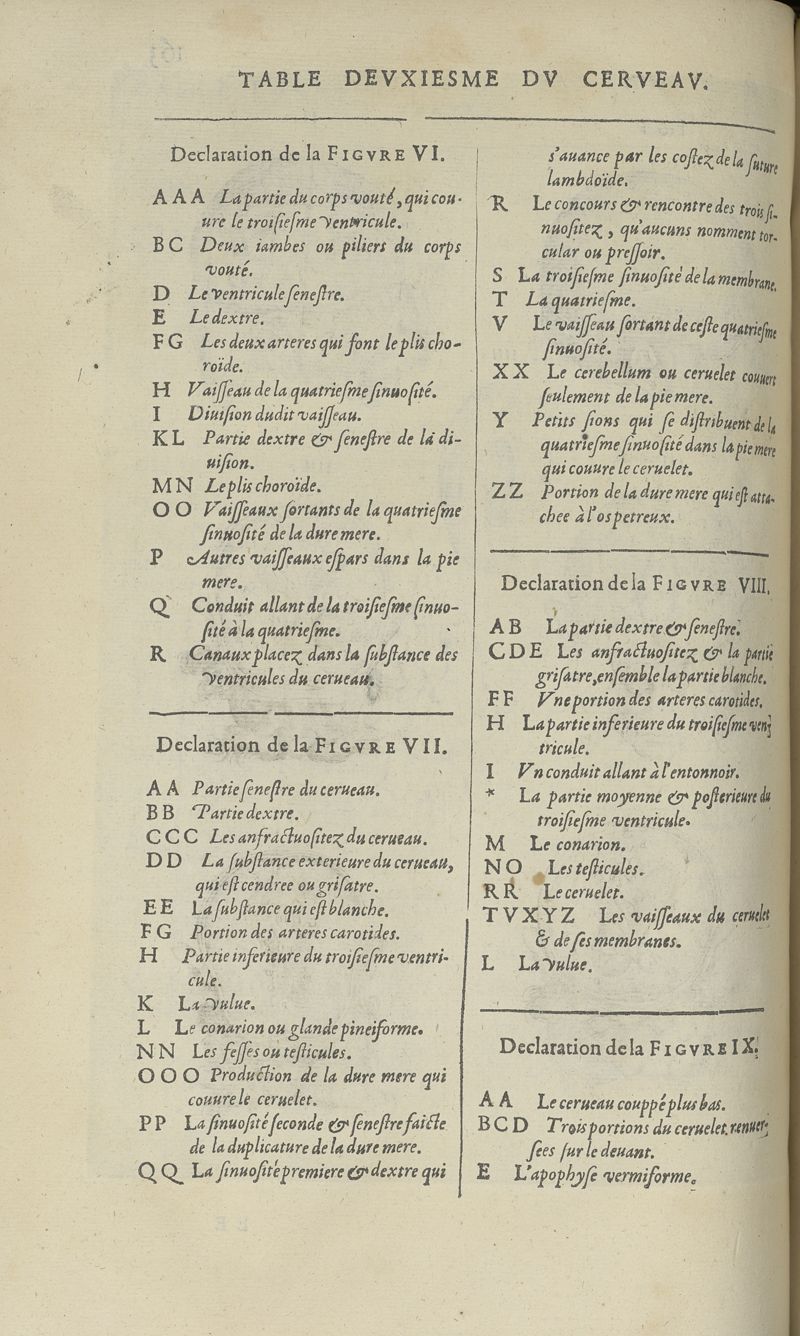 TABLE DEVXIESME DV CERVEAV.
Declaration de la FIGVRE VI.
A A A La partie du corps vouté, qui cou-
ure le troisiesme ventricule.
B C Deux iambes ou piliers du corps
vouté.
D Le ventricule senestre.
E Le dextre.
F G Les deux arteres qui font le plis cho-
roïde.
H Vaisseau de la quatriesme sinuosité.
I Diuision dudit vaisseau.
K L Partie dextre & senestre de la di-
uision.
M N Le plis choroïde.
O O Vaisseaux sortants de la quatriesme
sinuosité de la dure mere.
P Autres vaisseaux espars dans la pie
mere.
Q Conduit allant de la troisiesme sinuo-
sité à la quatriesme.
R Canaux placez dans la substance des
ventricules du cerueau.
Declaration de la FIGVRE VII.
A A Partie senestre du cerueau.
B B Partie dextre.
C C C Les anfractuositez du cerueau.
D D La substance exterieure du cerueau,
qui est cendree ou grisatre.
E E La substance qui est blanche.
F G Portion des arteres carotides.
H Partie inferieure du troisiesme ventri-
cule.
K La vulue.
L Le conarion ou glande pineiforme.
N N Les fesses ou testicules.
O O O Production de la dure mere qui
couure le ceruelet.
P P La sinuosité seconde & senestre faicte
de la duplicature de la dure mere.
Q Q La sinuosité premiere & dextre qui
s'auance par les costez de la suture
lambdoïde.
R Le concours & rencontre des trois si-
nuositez, qu'aucuns nomment tor-
cular ou pressoir.
S La troisiesme sinuosité de la membrane.
T La quatriesme.
V Le vaisseau sortant de ceste quatriesme
sinuosité.
X X Le cerebellum ou ceruelet couuert
seulement de la pie mere.
Y Petits sions qui se distribuent de la
quatriesme sinuosité dans la pie mere
qui couure le ceruelet.
Z Z Portion de la dure mere qui est atta-
chee à l'os petreux.
Declaration de la FIGVRE VIII.
A B La partie dextre & senestre.
C D E Les anfractuositez & la partie
grisatre, ensemble la partie blanche.
F F Vne portion des arteres carotides.
H La partie inferieure du troisiesme ven-
tricule.
I Vn conduit allant à l'entonnoir.
* La partie moyenne & posterieure du
troisiesme ventricule.
M Le conarion.
N O Les testicules.
R R Le ceruelet.
T V X Y Z Les vaisseaux du ceruelet
& de ses membranes.
L La vulue.
Declaration de la FIGVRE IX.
A A Le cerueau couppé plus bas.
B C D Trois portions du ceruelet, renuer-
sees sur le deuant.
E L'apophyse vermiforme.